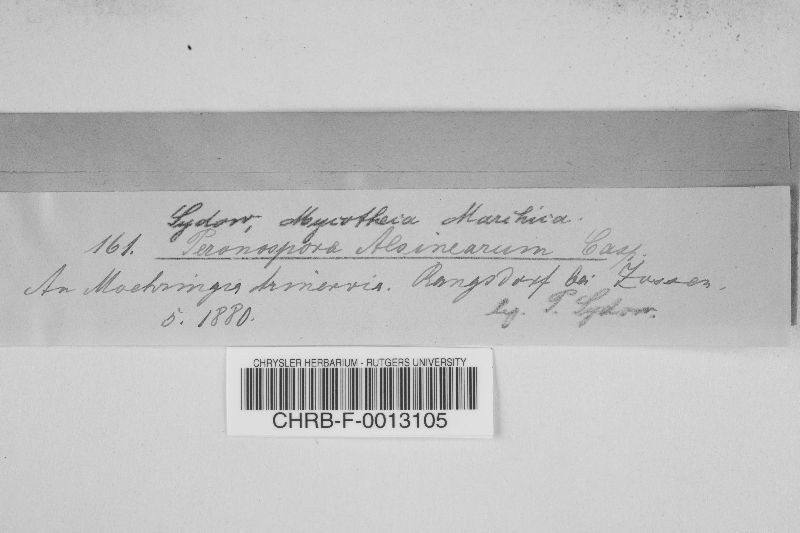 Sydow, Mycotheca Marchica.
161. Peronospora Alsinearum Casp.
An Moehringia trinervia. Rangsdorf bei Zossen.
5. 1880. leg. P. Sydow.
CHRYSLER HERBARIUM - RUTGERS UNIVERSITY
CHRB-F-0013105